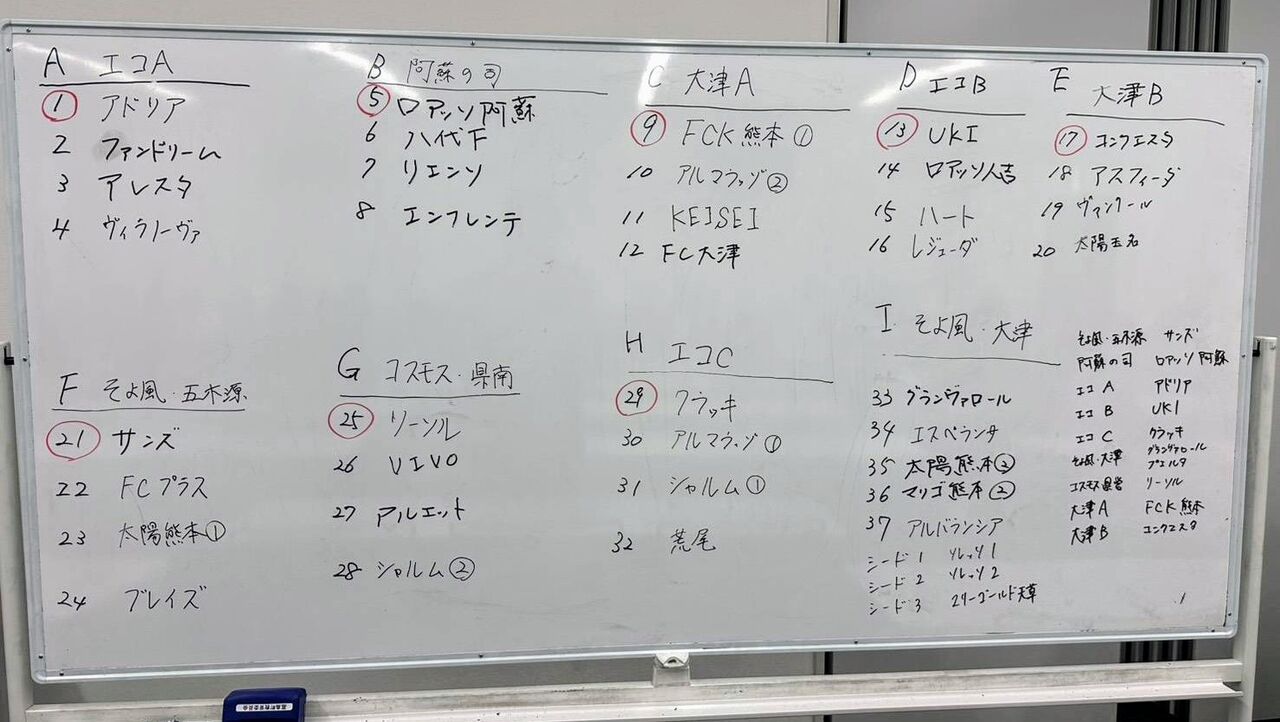 A エコA
① アドリア
2 ファンドリーム
3 アレスタ
4 ヴィラノーヴァ
B 阿蘇の司
⑤ ロアッソ阿蘇
6 八代F
7 リエンソ
8 エンフレンテ
C 大津A
⑨ FCK熊本①
10 アルマラッゾ②
11 KEISEI
12 FC大津
D エコB
⑬ UKI
14 ロアッソ人吉
15 ハート
16 レジェーダ
E 大津B
⑰ コンクエスタ
18 アスフィーダ
19 ヴァンクール
20 太陽玉名
F そよ風・五木源
㉑ サンズ
22 FCプラス
23 太陽熊本①
24 ブレイズ
G コスモス・県南
㉕ リーソル
26 VIVO
27 アルエット
28 シャルム②
H エコC
㉙ クラッキ
30 アルマラッゾ①
31 シャルム①
32 荒尾
I そよ風・大津
33 グランヴァロール
34 エスペランサ
35 太陽熊本②
36 マリゴ熊本②
37 アルバランシア
シード1 ソレッソ1
シード2 ソレッソ2
シード3 マリーゴールド天草
そよ風・五木源 サンズ
阿蘇の司 ロアッソ阿蘇
エコA アドリア
エコB UKI
エコC クラッキ
そよ風・大津 グランヴァロール
プエルタ
コスモス県営 リーソル
大津A FCK熊本
大津B コンクエスタ